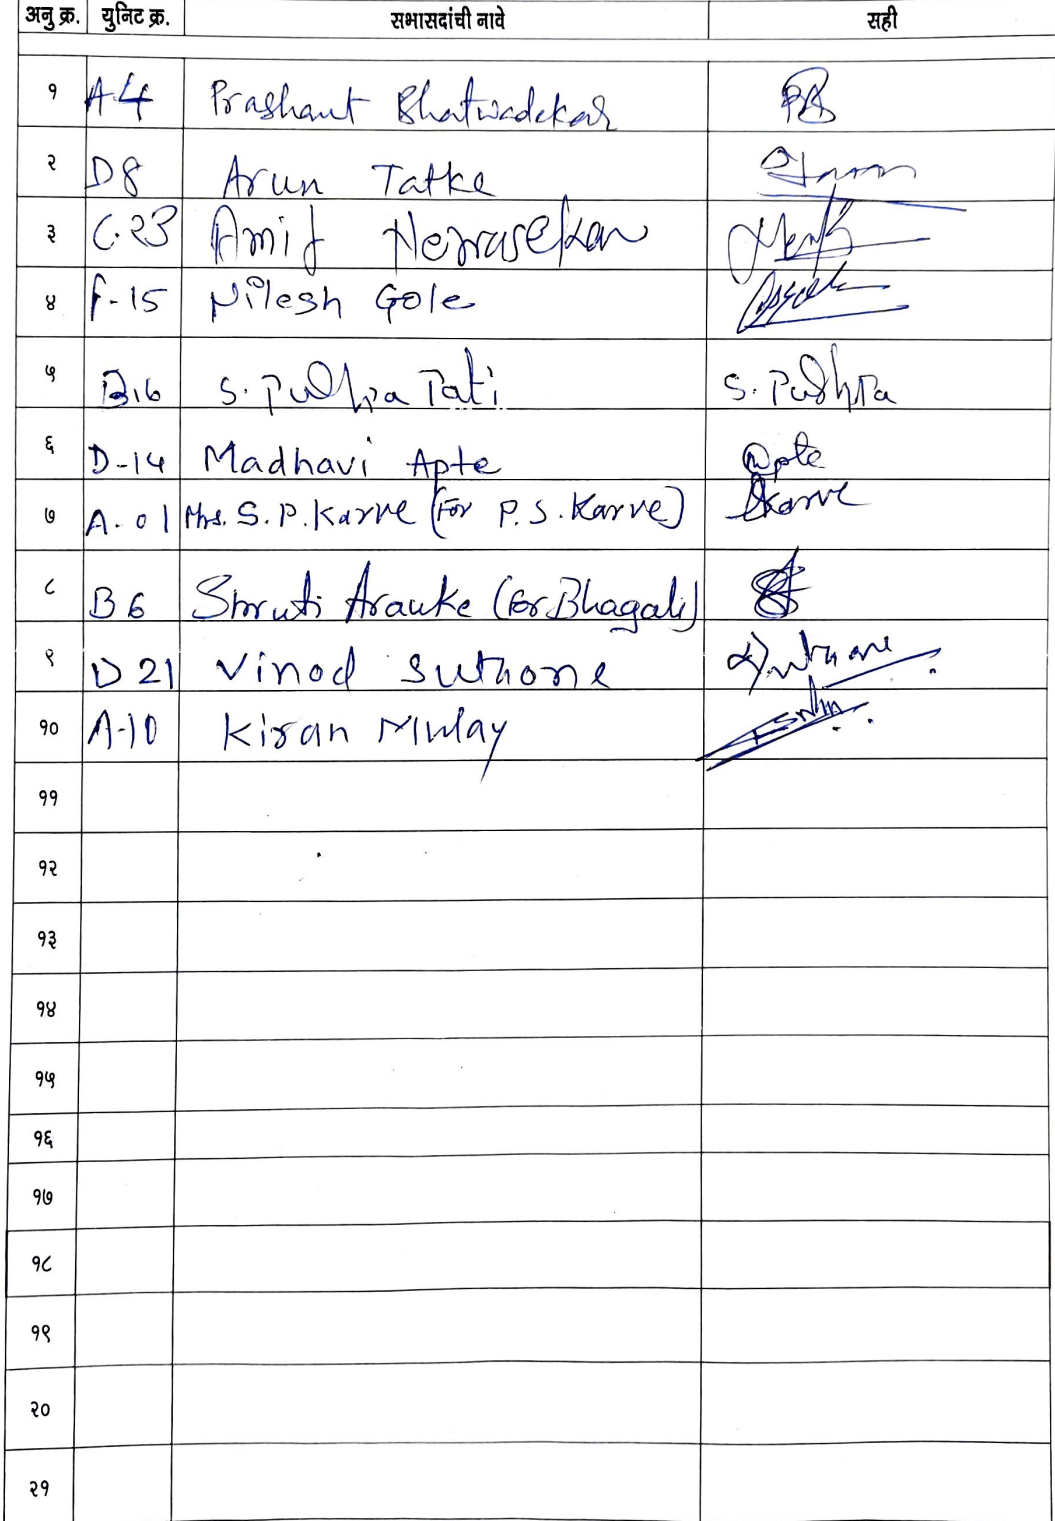 अनु क्र. युनिट क्र. सभासदांची नावे सही
१ A-4 Prashant Bhatwadekar
२ D8 Arun Tatke
३ C-23 Amit
४ F-15 Nilesh Gole
५ B16 S. Pushpa Pati S. Pushpa
६ D-14 Madhavi Apte Apte
७ A-01 Mrs. S.P. Karve (For P.S. Karve) Karve
८ B6 Shruti (For Bhagali)
९ D 21 Vinod Suthone
१० A-10 Kiran Mulay
११
१२
१३
१४
१५
१६
१७
१८
१९
२०
२१